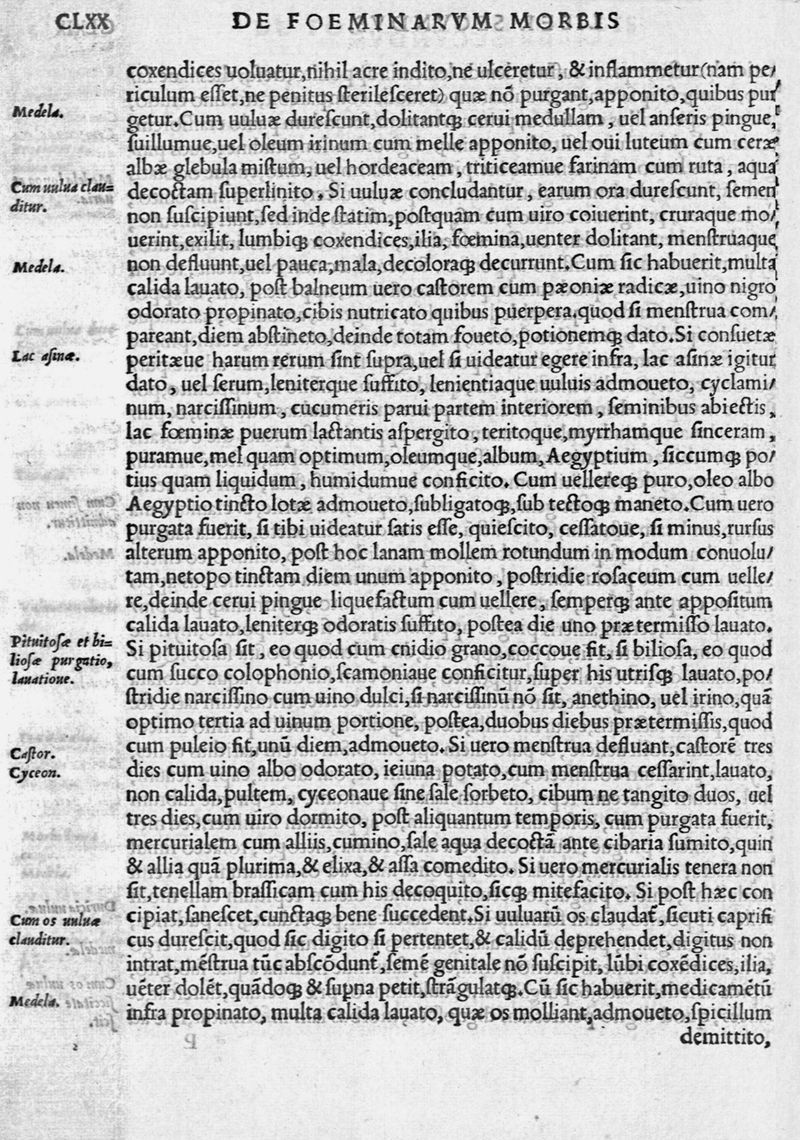 CLXX DE FOEMINARVM MORBIS
coxendices uoluatur,nihil acre indito,ne ulceretur, & inflammetur(nam pe/
riculum esset,ne penitus sterilesceret) quæ nō purgant,apponito,quibus pur
Medela.
getur.Cum uuluæ durescunt,dolitantq; cerui medullam, uel anseris pingue,
suillumue,uel oleum irinum cum melle apponito, uel oui luteum cum ceræ
albæ glebula mistum, uel hordeaceam, triticeamue farinam cum ruta, aqua
Cum uulua clau=
ditur.
decoctam superlinito. Si uuluæ concludantur, earum ora durescunt, semen
non suscipiunt,sed inde statim,postquam cum uiro coiuerint, cruraque mo/
uerint,exilit, lumbiq; coxendices,ilia, fœmina,uenter dolitant, menstruaque
Medela.
non defluunt,uel pauca,mala,decoloraq; decurrunt.Cum sic habuerit,multa
calida lauato, post balneum uero castorem cum pæoniæ radicæ,uino nigro
odorato propinato,cibis nutricato quibus puerpera.quod si menstrua com/
pareant,diem abstineto,deinde totam foueto,potionemq; dato.Si consuetæ
Lac asinæ.
peritæue harum rerum sint supra,uel si uideatur egere infra, lac asinæ igitur
dato, uel serum,leniterque suffito, lenientiaque uuluis admoueto, cyclami/
num, narcissinum, cucumeris parui partem interiorem, seminibus abiectis,
lac fœminæ puerum lactantis aspergito, teritoque,myrrhamque sinceram,
puramue,mel quam optimum,oleumque,album, Aegyptium, siccumq; po/
tius quam liquidum, humidumue conficito. Cum uellereq; puro,oleo albo
Aegyptio tincto lotæ admoueto,subligatoq;,sub tectoq; maneto.Cum uero
purgata fuerit, si tibi uideatur satis esse, quiescito, cessatoue, si minus,rursus
alterum apponito, post hoc lanam mollem rotundum in modum conuolu/
tam,netopo tinctam diem unum apponito, postridie rosaceum cum uelle/
re,deinde cerui pingue liquefactum cum uellere, semperq; ante appositum
calida lauato,leniterq; odoratis suffito, postea die uno prætermisso lauato.
Pituitosæ et bi=
liosæ purgatio,
lauatioue.
Si pituitosa sit, eo quod cum cnidio grano,coccoue fit, si biliosa, eo quod
cum succo colophonio,scamoniaue conficitur,super his utrisq; lauato,po/
stridie narcissino cum uino dulci,si narcissinū nō sit, anethino, uel irino,quā
optimo tertia ad uinum portione, postea,duobus diebus prætermissis,quod
Castor.
cum puleio fit,unū diem,admoueto. Si uero menstrua defluant,castorē tres
Cyceon.
dies cum uino albo odorato, ieiuna potato,cum menstrua cessarint,lauato,
non calida,pultem, cyceonaue sine sale sorbeto, cibum ne tangito duos, uel
tres dies,cum uiro dormito, post aliquantum temporis, cum purgata fuerit,
mercurialem cum alliis,cumino,sale aqua decoctā ante cibaria sumito,quin
& allia quā plurima,& elixa,& assa comedito. Si uero mercurialis tenera non
sit,tenellam brassicam cum his decoquito,sicq; mitefacito. Si post hæc con
Cum os uuluæ
clauditur.
cipiat,sanescet,cunctaq; bene succedent.Si uuluarū os claudat᷑,sicuti caprifi
cus durescit,quod sic digito si pertentet,& calidū deprehendet,digitus non
intrat,mēstrua tūc abscōdunt᷑,semē genitale nō suscipit, lūbi coxēdices,ilia,
uēter dolēt,quādoq; & supna petit,strāgulatq;.Cū sic habuerit,medicamētū
Medela.
infra propinato, multa calida lauato, quæ os molliant,admoueto,spicillum
demittito,